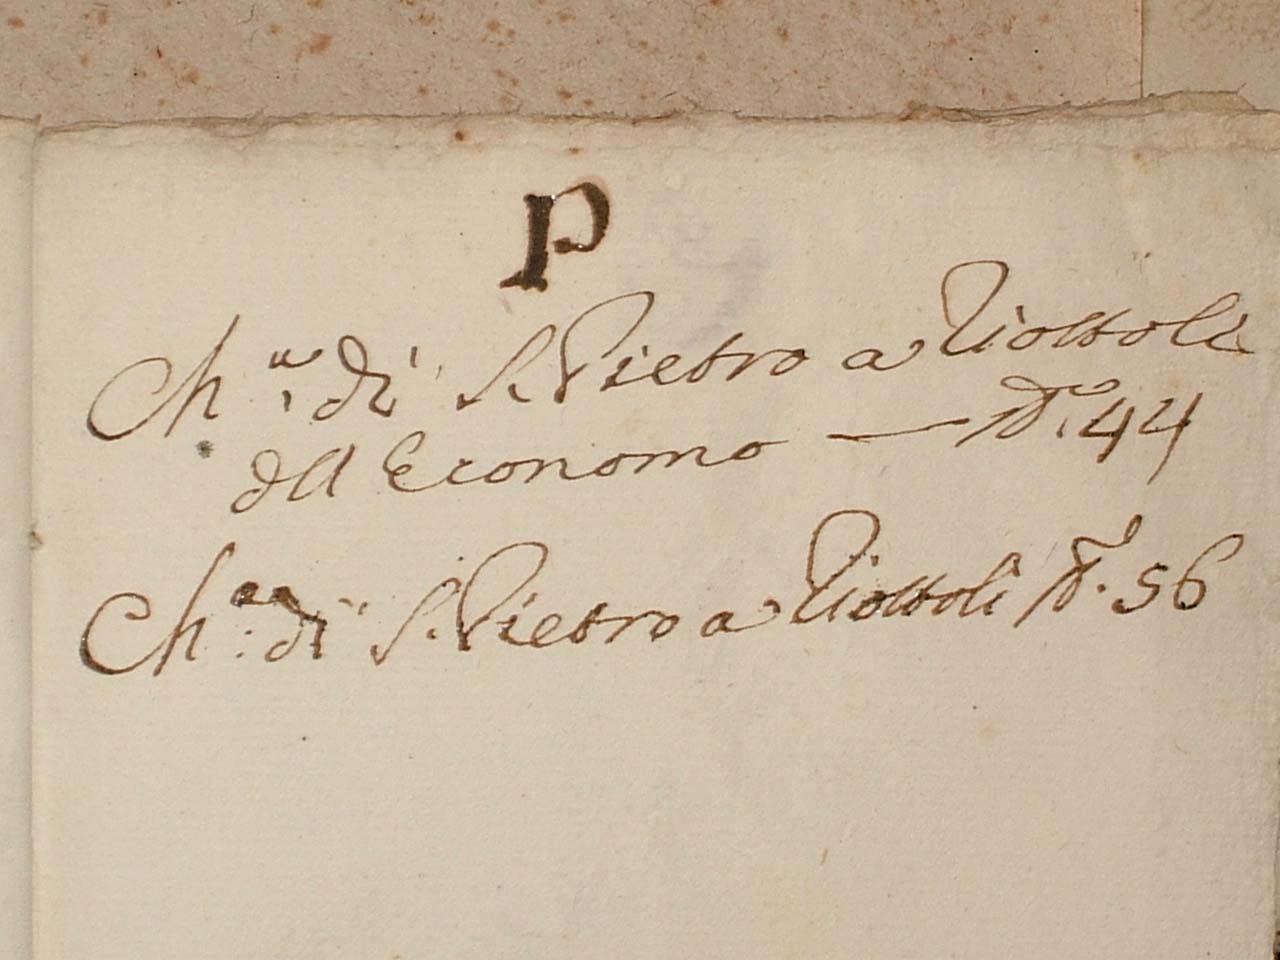 P
Ch.ª di S. Pietro a Viottoli
dell Economo — N.º 44
Ch.ª di S. Pietro a Viottoli N.º 56